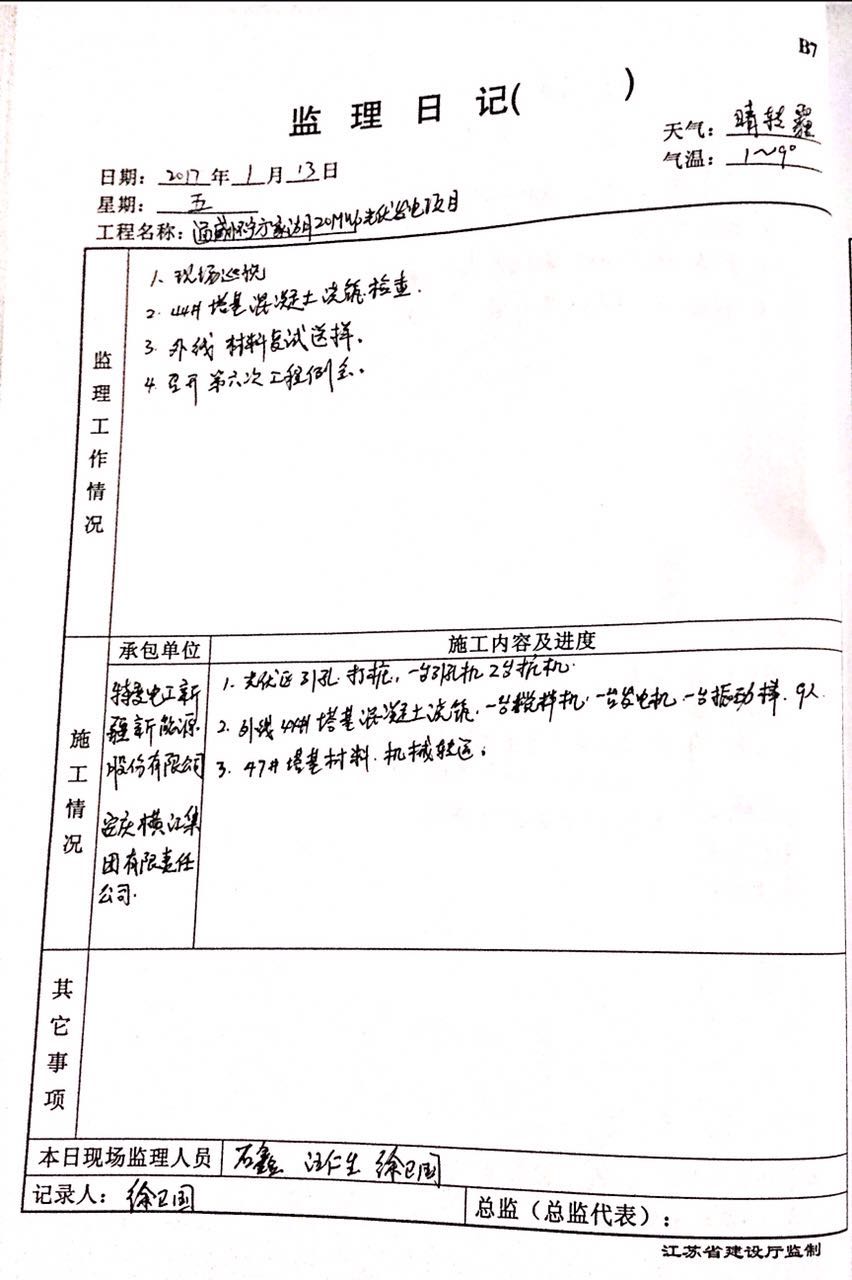 B7
监理日记( )
天气：晴转霾
气温：1～9°
日期：2017年1月13日
星期：五
工程名称：通威怀宁方家湖20MWp光伏发电项目
监理工作情况
1. 现场巡视
2. 44# 塔基混凝土浇筑检查.
3. 外线材料复试送样.
4. 召开第六次工程例会.
施工情况
承包单位
施工内容及进度
特变电工新
疆新能源
股份有限公司
安庆横江集
团有限责任
公司.
1. 光伏区引孔. 打桩, 一台引孔机 2台桩机.
2. 外线44#塔基混凝土浇筑. 一台搅拌机. 一台发电机. 一台振动棒. 9人
3. 47#塔基材料. 机械转运.
其它事项
本日现场监理人员 石鑫 汪仁生 徐卫国
记录人：徐卫国
总监（总监代表）：
江苏省建设厅监制